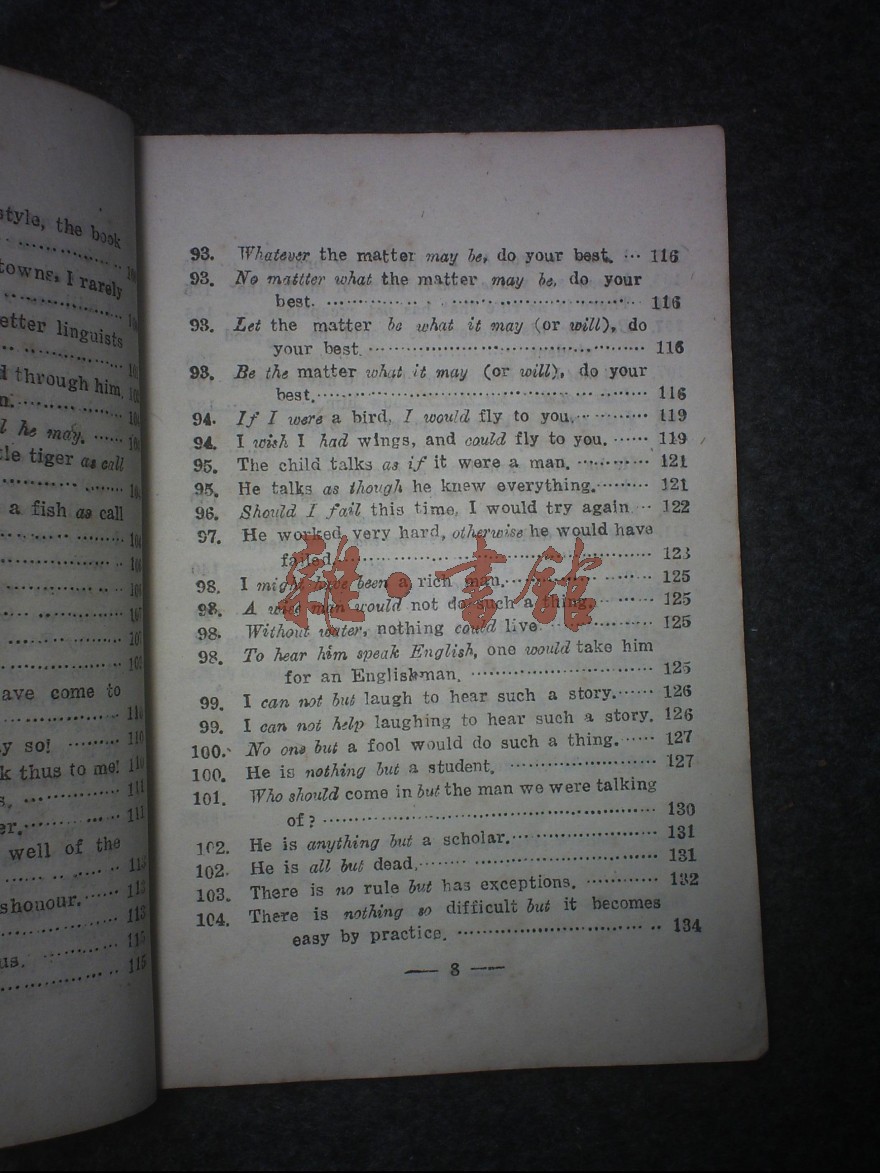 style, the book
towns, I rarely
etter linguists
d through him,
n.
l he may. ......
tle tiger as call
a fish as call
ave come to
y so! ......... 110
k thus to me! 110
s, ............. 111
er. ............ 111
well of the
shonour. ...... 113
113
us. 115
115
93. Whatever the matter may be, do your best. ... 116
93. No mattter what the matter may be, do your
best. ........................................ 116
93. Let the matter be what it may (or will), do
your best. ........................................ 116
93. Be the matter what it may (or will), do your
best. ........................................ 116
94. If I were a bird, I would fly to you. .......... 119
94. I wish I had wings, and could fly to you. ...... 119
95. The child talks as if it were a man. ........... 121
95. He talks as though he knew everything. ......... 121
96. Should I fail this time, I would try again .. 122
97. He worked very hard, otherwise he would have
failed. ........................................ 123
98. I might have been a rich man. .................. 125
98. A wise man would not do such a thing. ...... 125
98. Without water, nothing could live ............... 125
98. To hear him speak English, one would take him
for an Englishman. ........................... 125
99. I can not but laugh to hear such a story. ...... 126
99. I can not help laughing to hear such a story. 126
100. No one but a fool would do such a thing. ..... 127
100. He is nothing but a student. ..................... 127
101. Who should come in but the man we were talking
of? ............................................. 130
102. He is anything but a scholar. .................. 131
102. He is all but dead. .............................. 131
103. There is no rule but has exceptions. ............ 132
104. There is nothing so difficult but it becomes
easy by practice. .............................. 134
— 8 —
雜·書館